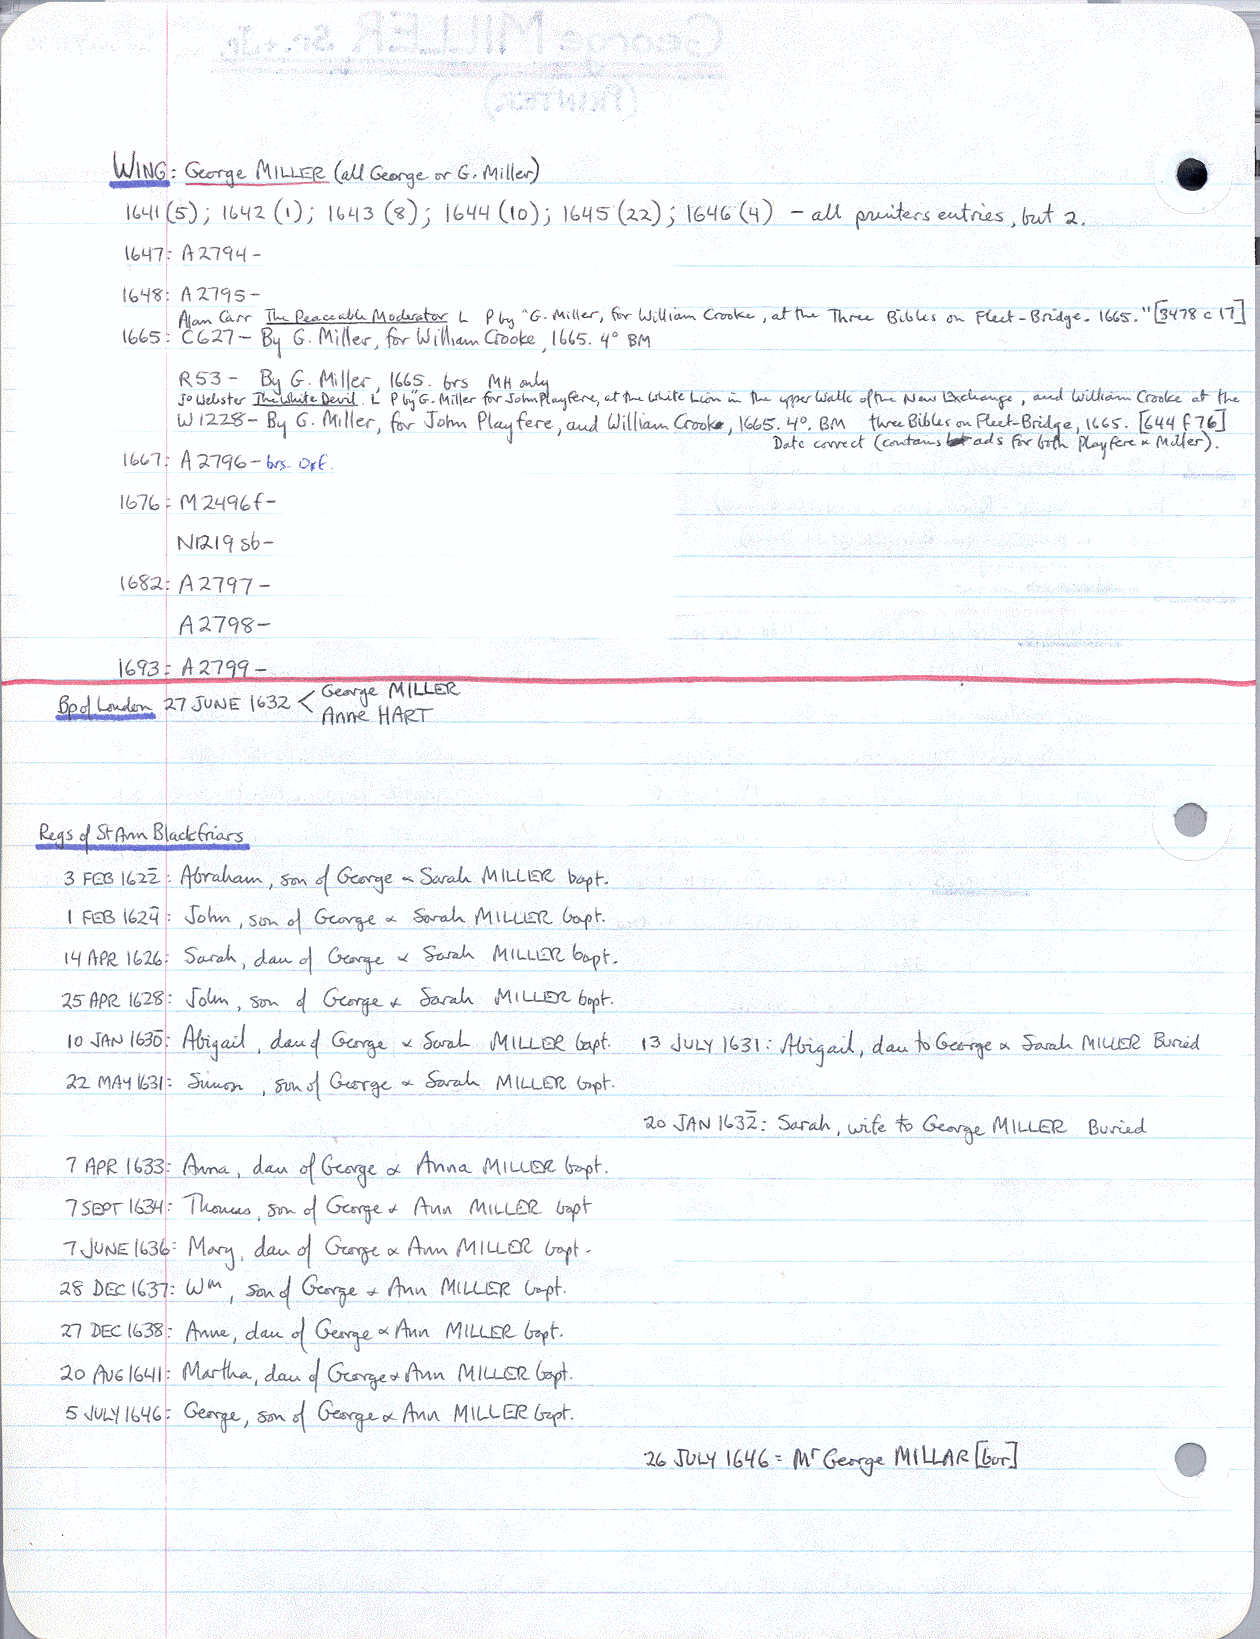 WING: George MILLER (all George or G. Miller)
1641 (5); 1642 (1); 1643 (8); 1644 (10); 1645 (22); 1646 (4) – all printers entries, but 2.
1647: A2794 –
1648: A2795 –
Alan Carr The Peaceable Moderator L P by "G. Miller, for William Crooke, at the Three Bibles on Fleet-Bridge. 1665." [3478 c 17]
1665: C627 – By G. Miller, for William Crooke, 1665. 4° BM
R53 – By G. Miller, 1665. brs MH only
Jo Webster The White Devil L P by "G. Miller for John Playfere, at the White Lion in the upper Walk of the New Exchange, and William Crooke at the
W1228 – By G. Miller, for John Playfere, and William Crooke, 1665. 4°. BM three Bibles on Fleet-Bridge, 1665. [644 f 76]
Date correct (contains ads for both Playfere & Miller).
1667: A2796 – brs. Oxf.
1676: M2496f –
N1219sb –
1682: A2797 –
A2798 –
1693: A2799 –
Bp of London 27 JUNE 1632 < George MILLER
Anne HART
Regs of St Ann Blackfriars
3 FEB 1622̅: Abraham, son of George & Sarah MILLER bapt.
1 FEB 1624̅: John, son of George & Sarah MILLER bapt.
14 APR 1626: Sarah, dau of George & Sarah MILLER bapt.
25 APR 1628: John, son of George & Sarah MILLER bapt.
10 JAN 1630̅: Abigail, dau of George & Sarah MILLER bapt. 13 JULY 1631: Abigail, dau to George & Sarah MILLER Buried
22 MAY 1631: Simon, son of George & Sarah MILLER bapt.
20 JAN 1632̅: Sarah, wife to George MILLER Buried
7 APR 1633: Anna, dau of George & Anna MILLER bapt.
7 SEPT 1634: Thomas, son of George & Ann MILLER bapt
7 JUNE 1636: Mary, dau of George & Ann MILLER bapt.
28 DEC 1637: Wm, son of George & Ann MILLER bapt.
27 DEC 1638: Anne, dau of George & Ann MILLER bapt.
20 AUG 1641: Martha, dau of George & Ann MILLER bapt.
5 JULY 1646: George, son of George & Ann MILLER bapt.
26 JULY 1646 = Mr George MILLAR [bur]